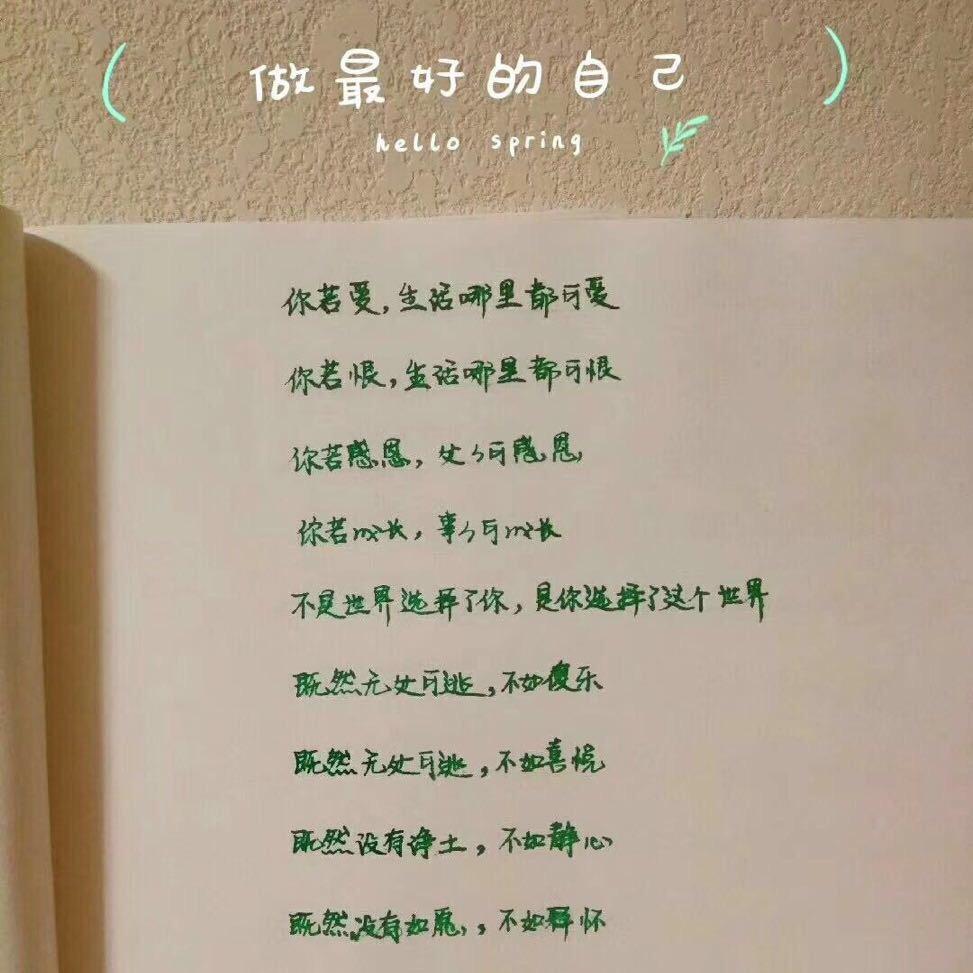 做最好的自己
hello spring
你若爱,生活哪里都可爱
你若恨,生活哪里都可恨
你若感恩,处处可感恩
你若成长,事事可成长
不是世界选择了你,是你选择了这个世界
既然无处可逃,不如傻乐
既然无处可逃,不如喜悦
既然没有净土,不如静心
既然没有如愿,不如释怀